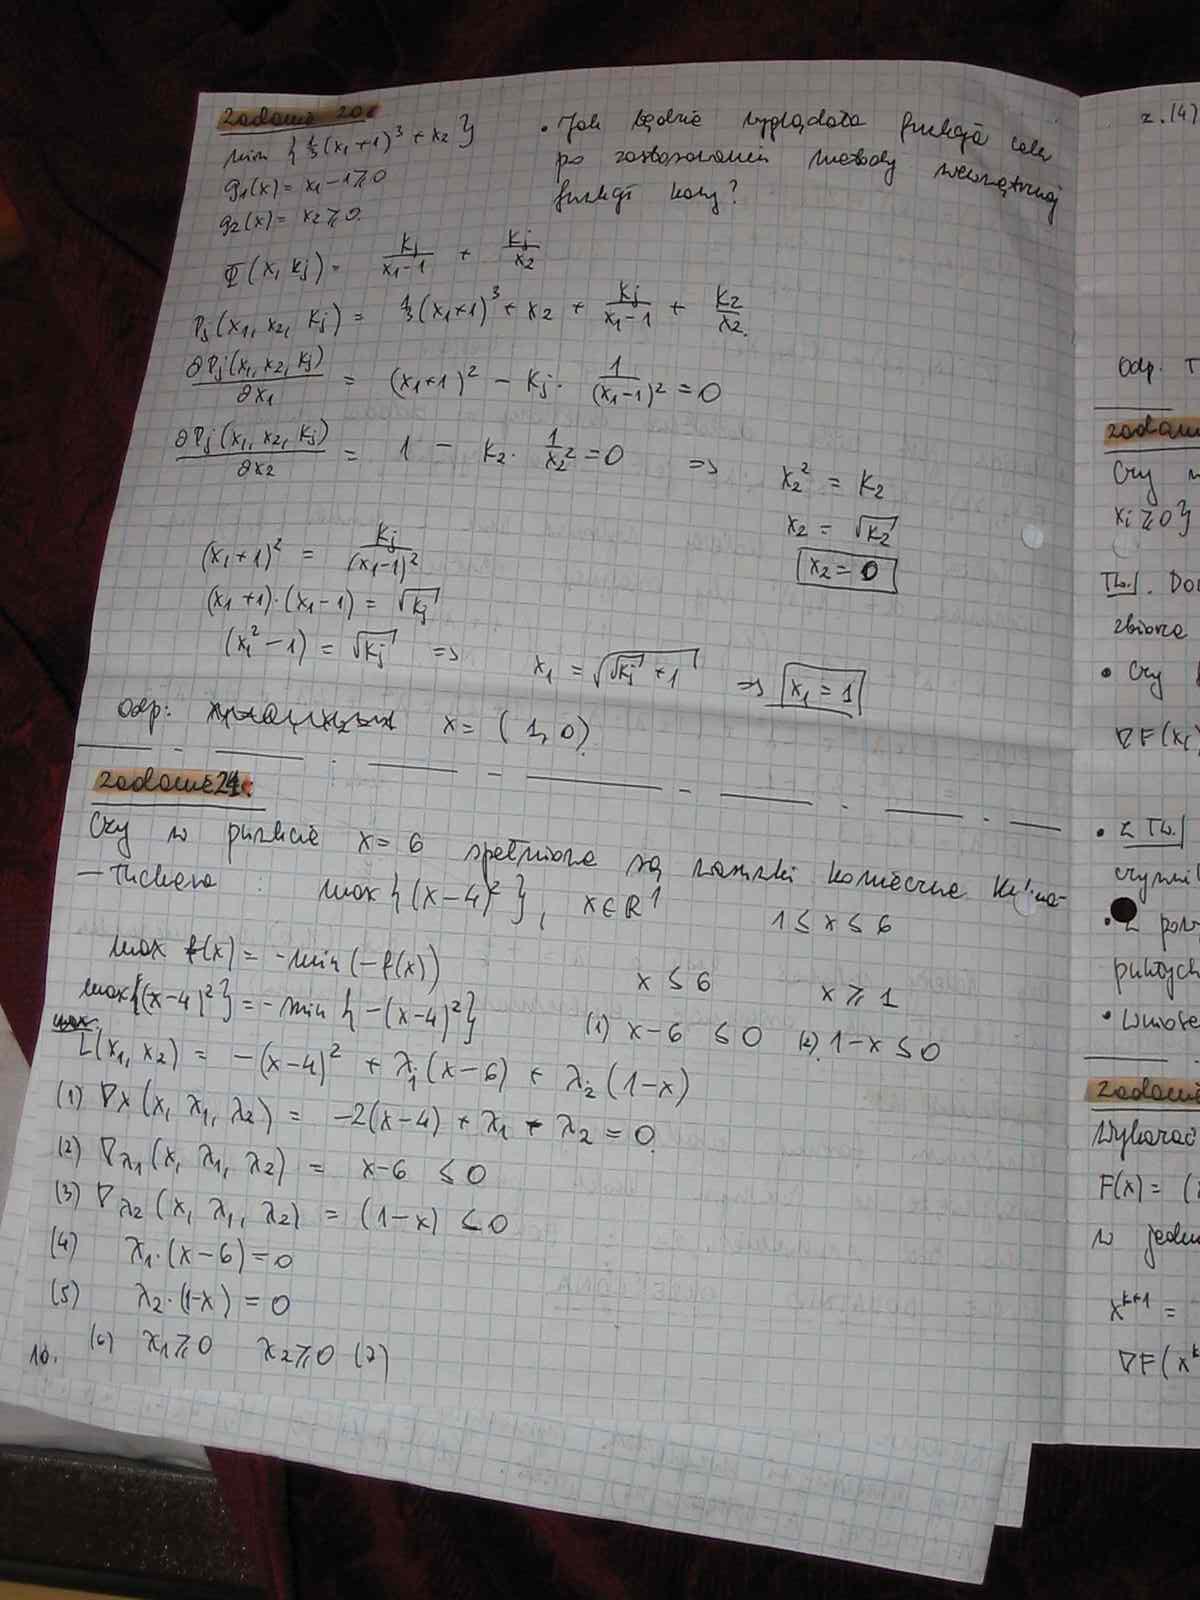 Zadanie 20.
min {1/3(x₁+1)³ + x₂}
g₁(x) = x₁ - 1 ≥ 0
g₂(x) = x₂ ≥ 0.
• Jak będzie wyglądała funkcja celu
po zastosowaniu metody wewnętrznej
funkcji kary?
Φ(x, kj) = kj/(x₁-1) + kj/x₂
Pj(x₁, x₂, kj) = 1/3(x₁+1)³ + x₂ + kj/(x₁-1) + k₂/x₂.
∂Pj(x₁, x₂, kj)/∂x₁ = (x₁+1)² - kj · 1/(x₁-1)² = 0
∂Pj(x₁, x₂, kj)/∂x₂ = 1 - k₂ · 1/x₂² = 0 => x₂² = k₂
x₂ = √k₂
x₂ = 0
(x₁+1)² = kj/(x₁-1)²
(x₁+1)·(x₁-1) = √kj
(x₁²-1) = √kj => x₁ = √(√kj+1) => x₁ = 1
Odp: x = (1, 0)
Zadanie 21.
Czy w punkcie x = 6 spełnione są warunki konieczne Kuhna-
-Tuckera : max {(x-4)²}, x∈R¹ 1 ≤ x ≤ 6
max f(x) = -min(-f(x)) x ≤ 6 x ≥ 1
max{(x-4)²} = -min {-(x-4)²} (1) x-6 ≤ 0 (2). 1-x ≤ 0
L(x₁, x₂) = -(x-4)² + λ₁(x-6) + λ₂(1-x)
(1) ∇x(x, λ₁, λ₂) = -2(x-4) + λ₁ - λ₂ = 0
(2) ∇λ₁(x, λ₁, λ₂) = x-6 ≤ 0
(3) ∇λ₂(x, λ₁, λ₂) = (1-x) ≤ 0
(4) λ₁·(x-6) = 0
(5) λ₂·(1-x) = 0
(6) λ₁ ≥ 0 λ₂ ≥ 0 (7)
10.
z.(4)
Odp. T
Zadanie
Czy
xi ≥ 0}
Tw.1.
zbiorze
• Czy
∇F(xi)
• Z Tw.1
• Z
• Wniosek
Zadanie
Wykazać
F(x) = (
w
x^(k+1) =
∇F(x^k